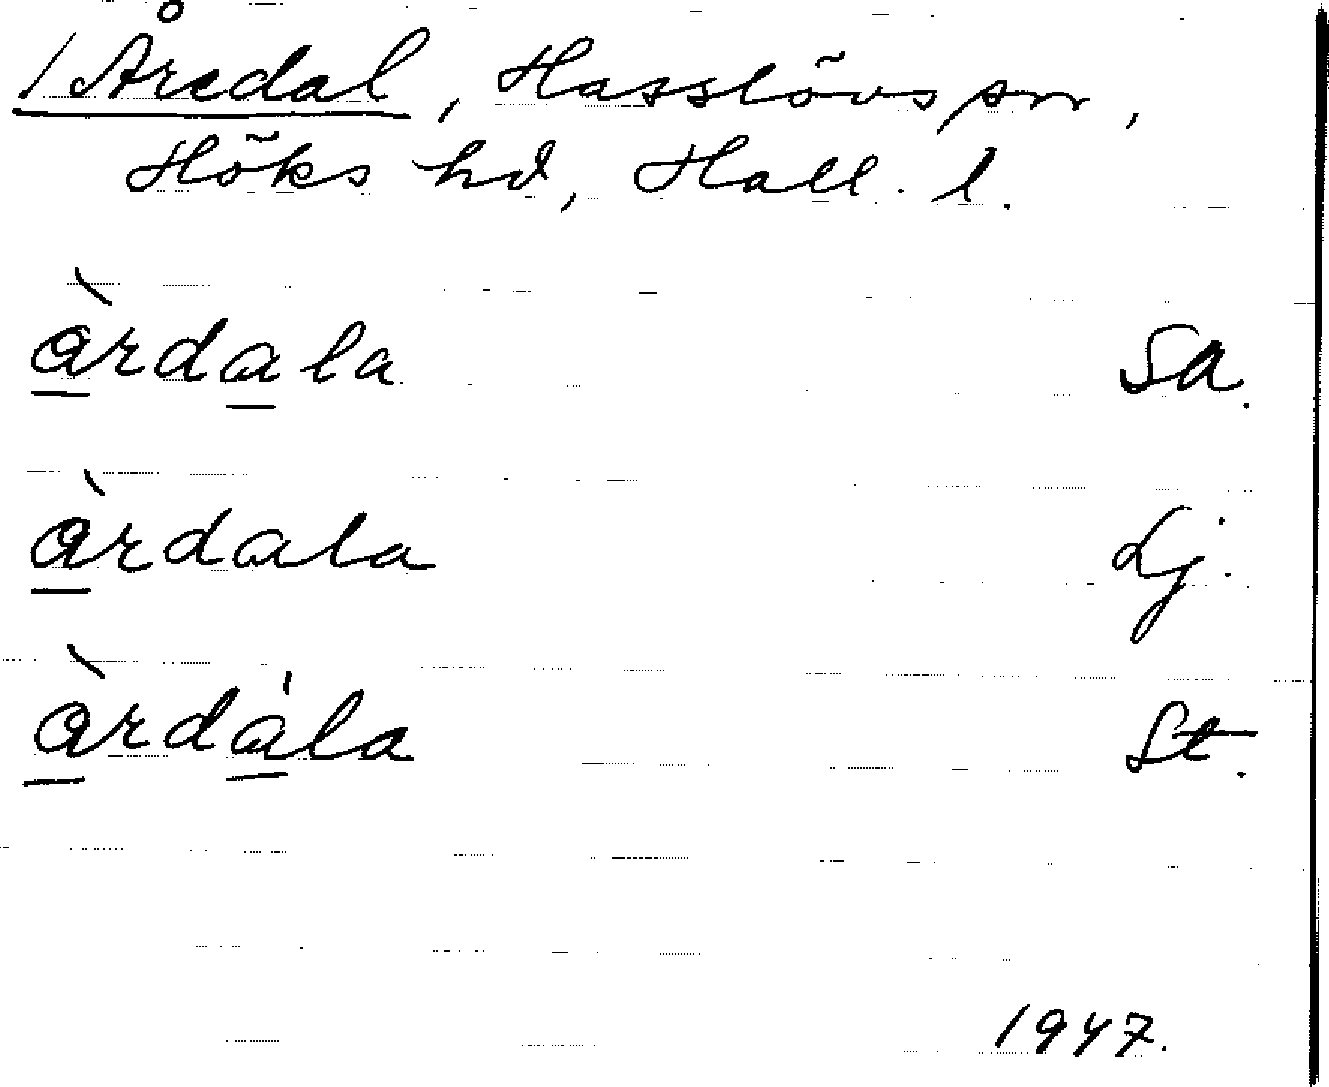 / Åredal, Hasslövs sn,
Höks hd, Hall. l.
àrdala Sa.
àrdala Lj.
àrdála St.
1947.